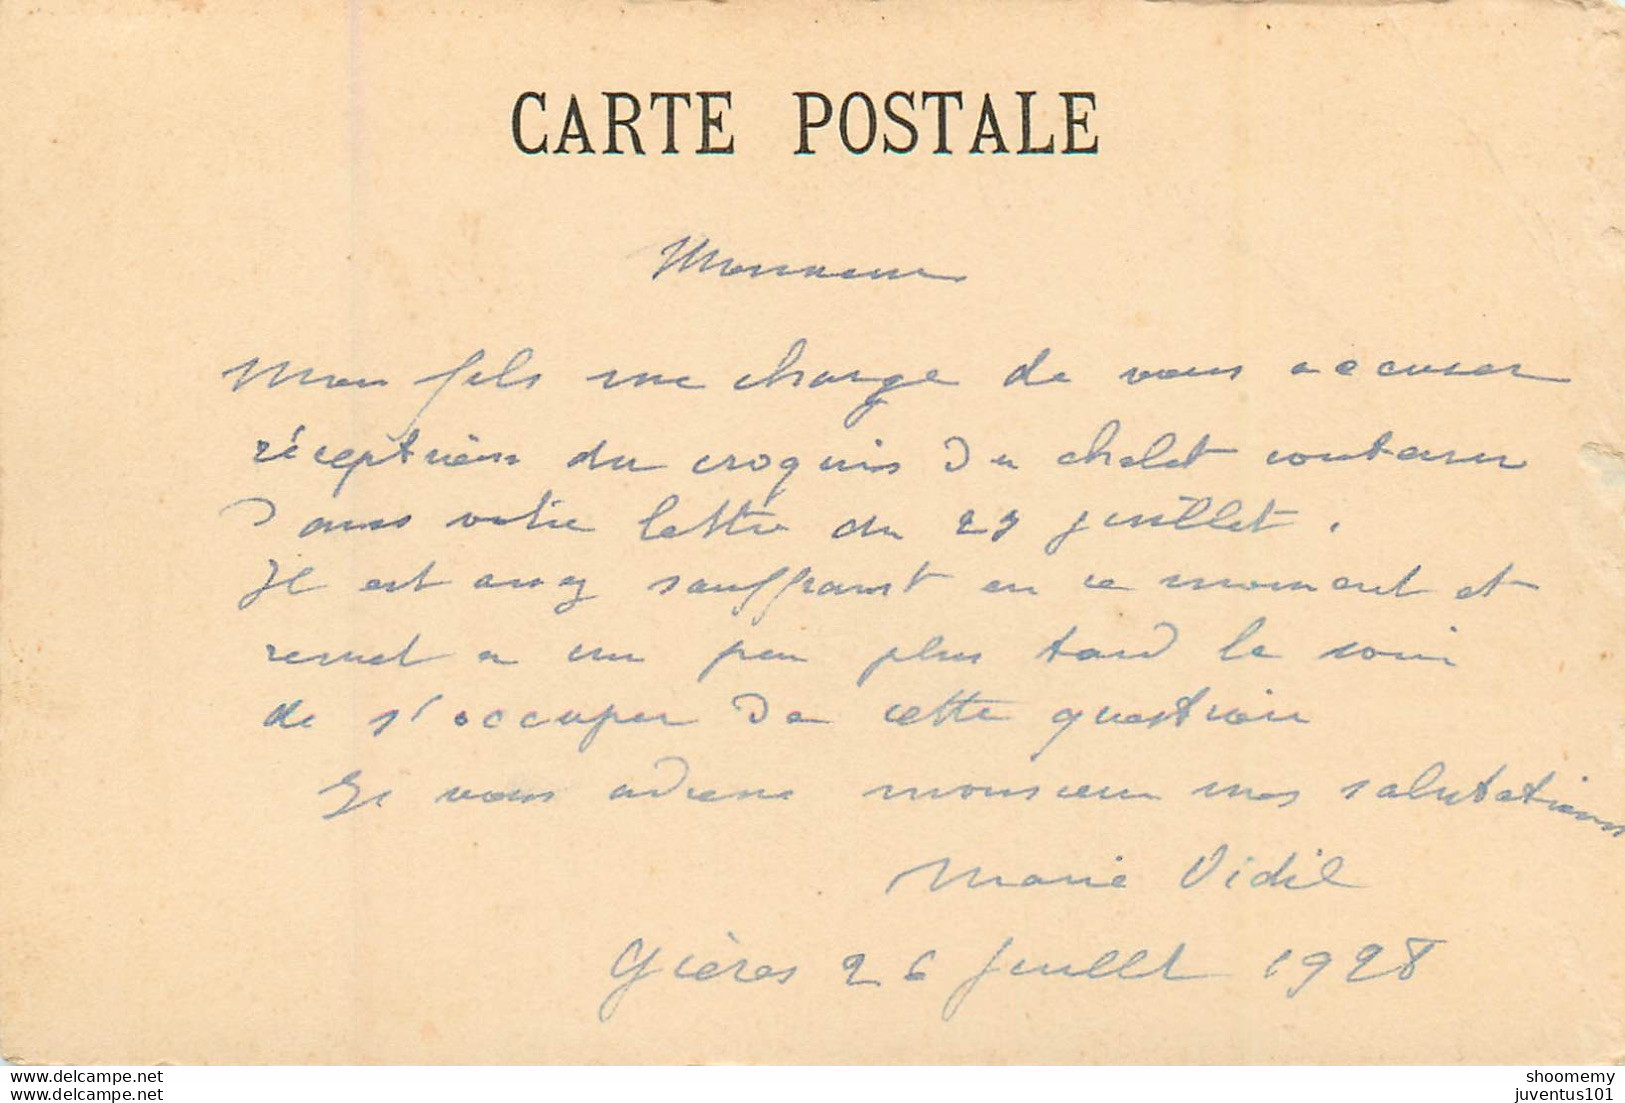 CARTE POSTALE
Monsieur
Mon fils me charge de vous accuser
réception du croquis du chalet contenu
dans votre lettre du juillet.
Il est assez souffrant en ce moment et
remet a un peu plus tard le soin
de s'occuper de cette question
Je vous adresse monsieur mes salutations
Marie Vidil
Gières 26 Juillet 1928
www.delcampe.net
www.delcampe.net
shoomemy
juventus101